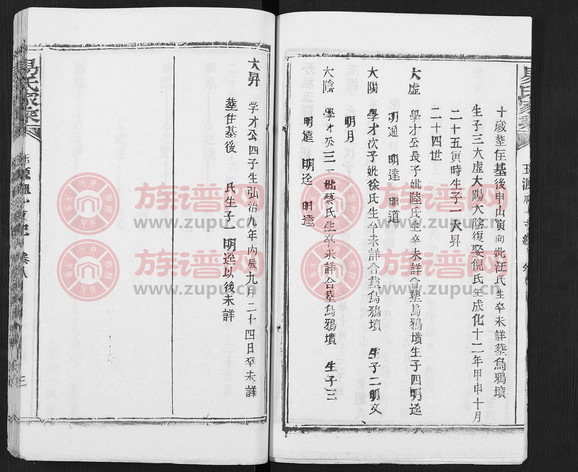 十歲葬任基後甲山寅向妣汪氏生卒未詳葬烏鴉墳
生子三大虛大陽大陰復娶倪氏生成化十二年甲申十月
二十五寅時生子一大昇
二十四世
大虛 學才公長子妣陸氏生卒未詳合葬烏鴉墳生子四明
明通 明達 明道
大陽 學才次子妣徐氏生卒未詳合葬烏鴉墳 生子二明文
明月
大陰 學才公三子妣 氏生卒未詳合葬烏鴉墳 生子三
明達 明
大昇 學才公四子生弘治九年丙辰九月二十四日卒未詳
葬任基後 氏生子一明 以後未詳
易氏家乘
卷八
族谱网
www.zupu.cn
族谱网
www.zupu.cn
族谱网
www.zupu.cn
族谱网
www.zupu.cn